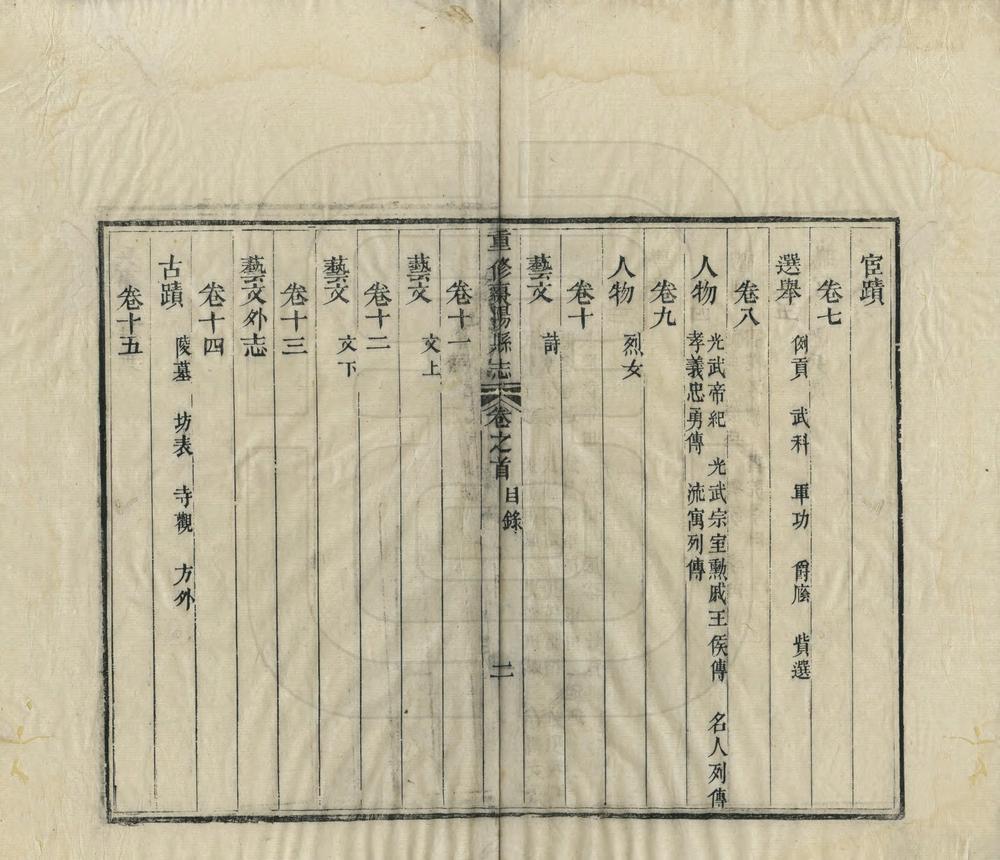 宦蹟
卷七
選舉 例貢 武科 軍功 爵廕 貲選
卷八
人物 光武帝紀 光武宗室勲戚王侯傳 名人列傳
孝義忠勇傳 流寓列傳
卷九
人物 烈女
卷十
藝文 詩
重修棗陽縣志 卷之首 目錄 二
卷十一
藝文 文上
卷十二
藝文 文下
卷十三
藝文外志
卷十四
古蹟 陵墓 坊表 寺觀 方外
卷十五